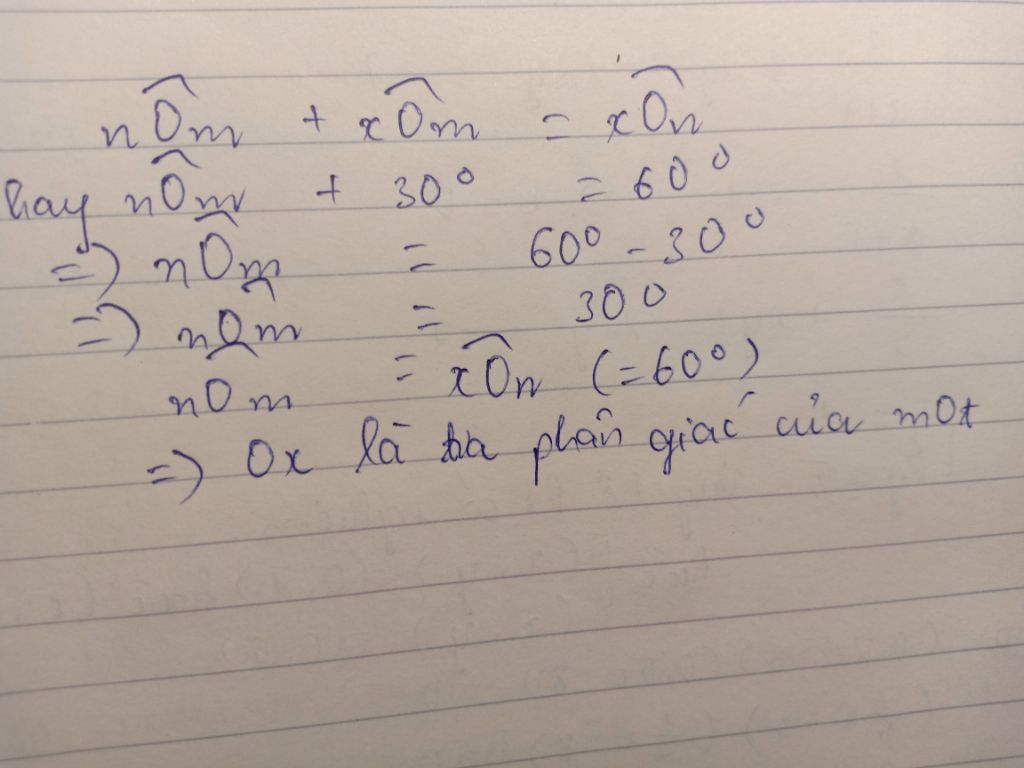 nÔm + xÔm = xÔn
hay nÔm + 30° = 60°
=) nÔm = 60° - 30°
=) nÔm = 30°
nÔm = xÔn (=60°)
=) Ox là tia phân giác của mOt